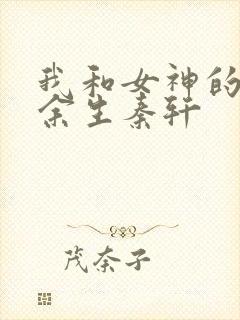 我和女神的
余生秦轩
茂奈子